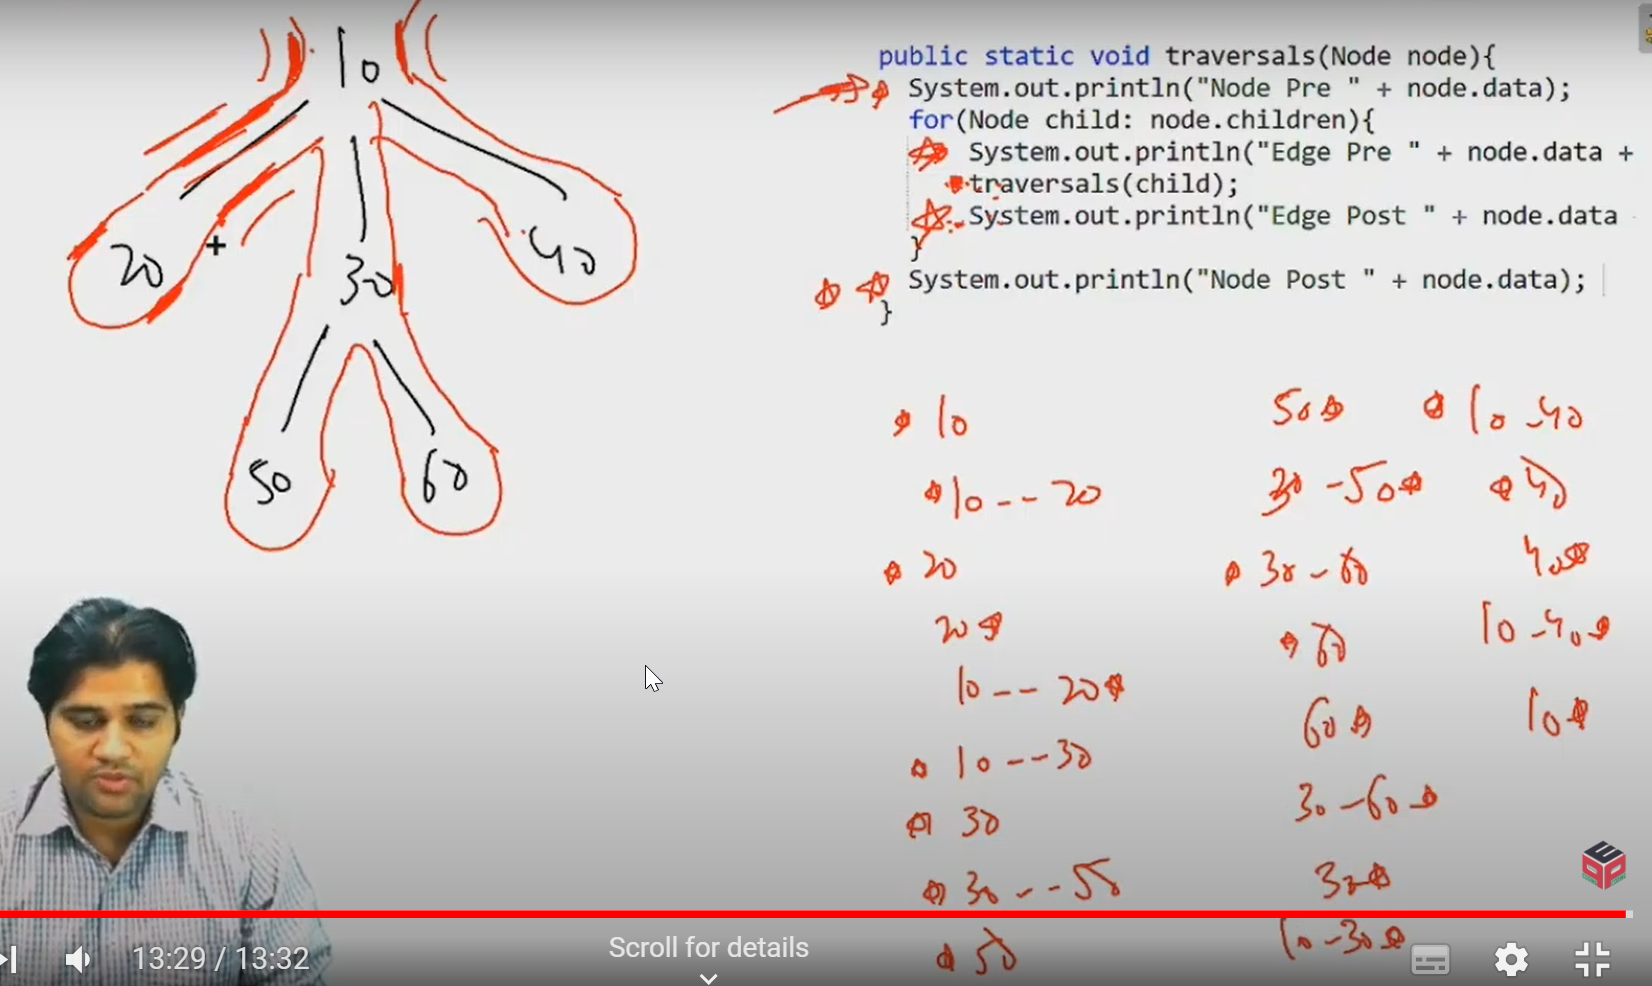 10
20
30
40
50
60
public static void traversals(Node node){
System.out.println("Node Pre " + node.data);
for(Node child: node.children){
System.out.println("Edge Pre " + node.data +
traversals(child);
System.out.println("Edge Post " + node.data
}
System.out.println("Node Post " + node.data);
}
10
10 -- 20
20
20
10 -- 20
10 -- 30
30
30 -- 50
50
50
30 - 50
30 - 60
60
60
30 - 60
30
10 - 30
10 - 40
40
40
10 - 40
10
13:29 / 13:32
Scroll for details